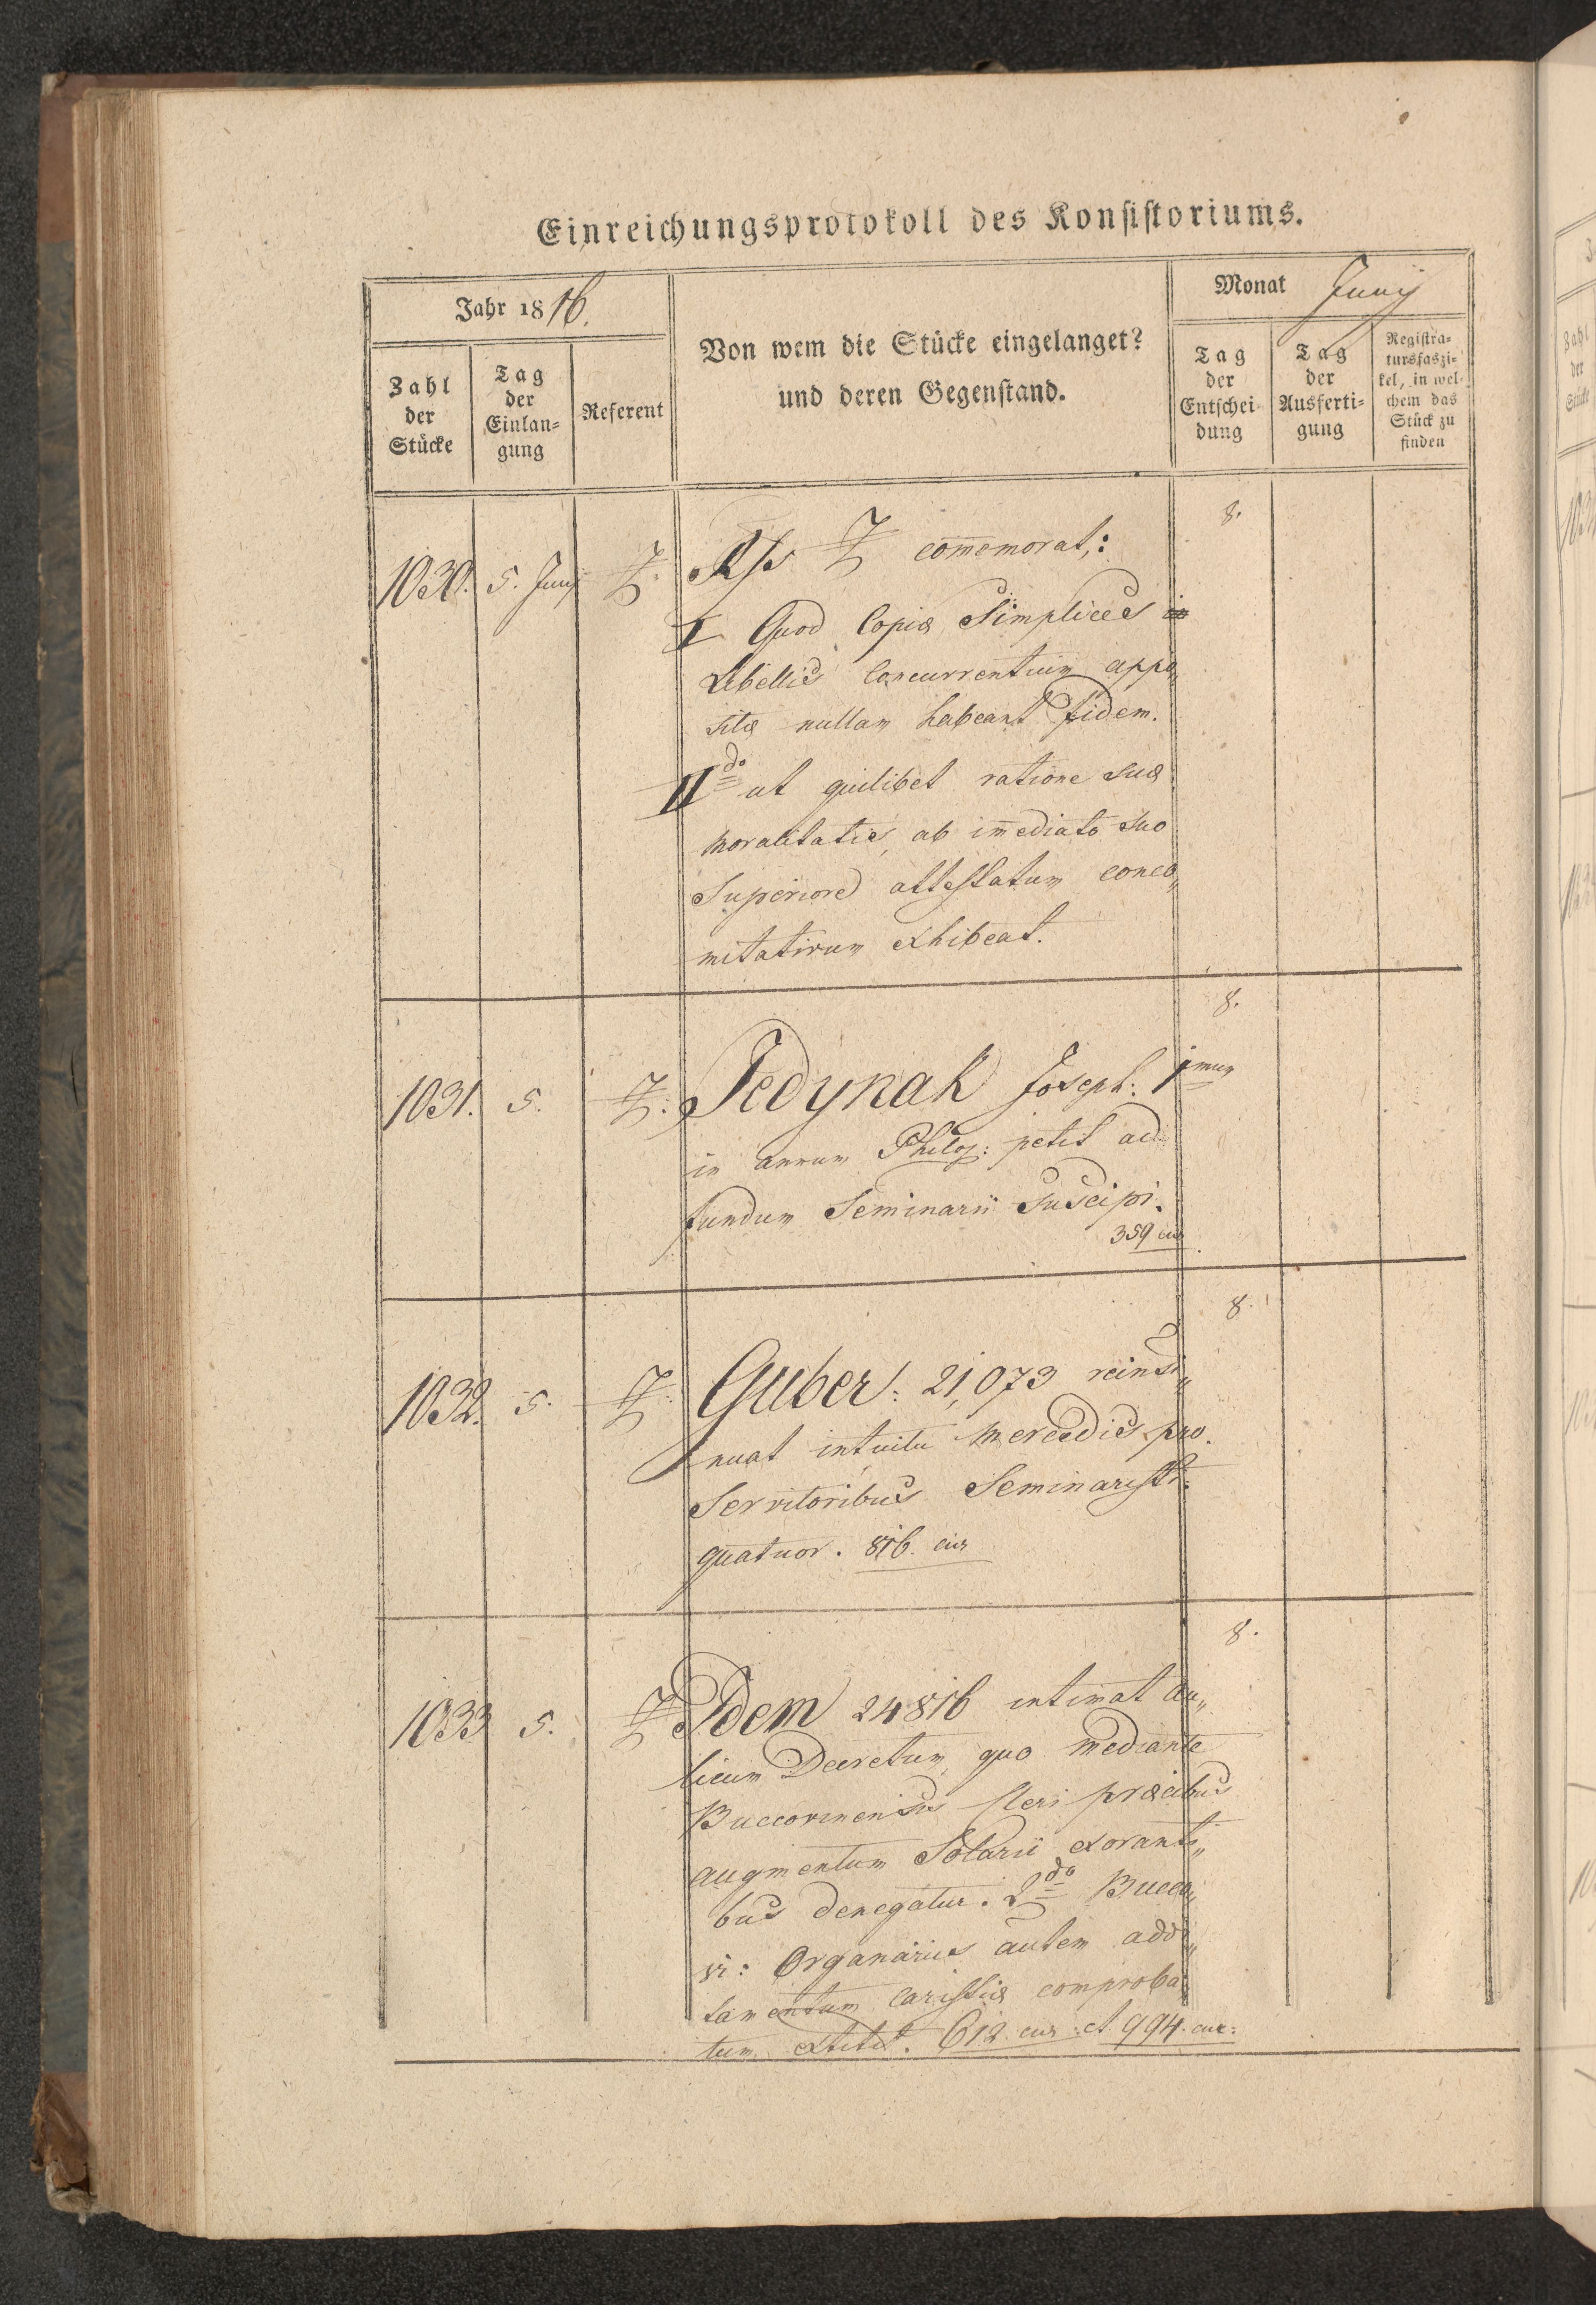 Einreichungsprotokoll des Konsistoriums.
Jahr 1816.
Monat Junij
Zahl der Stücke
Tag der Einlangung
Referent
Von wem die Stücke eingelanget?
und deren Gegenstand.
Tag der Entscheidung
Tag der Ausfertigung
Registratursfaszikel, in welchem das Stück zu finden
1030. 5. Junij Z. Z com̄emorat,: 8.
I Quod Copiæ Simplices in
Libellis Concurrentium appo„
sitæ nullam habeant fidem.
II do ut quilibet ratione suæ
moralitatis, ab im̄ediato suo
Superiore attestatum conco„
mitativum exhibeat.
1031. 5. Z. Jedynak Joseph: 1mum 8.
in annum Philos: petit ad
fundum Seminarii suscipi.
359 cur
1032. 5. Z. Guber: 21,073 reinsi„ 8.
nuat intuitu Mercedis pro
Servitoribus Seminarist:
quatuor. 816. cur
1033 5. Z Idem 24816 intimat Au„ 8.
licum Decretum, quo mediante
Buccovinensis Cleri præcibus
augmentum Solarii exoranti„
bus denegatur. 2do Bucco„
vi: Organarius autem addi„
tamentum caristiæ comproba„
tum extitit. 612 cur: et 994. cur: